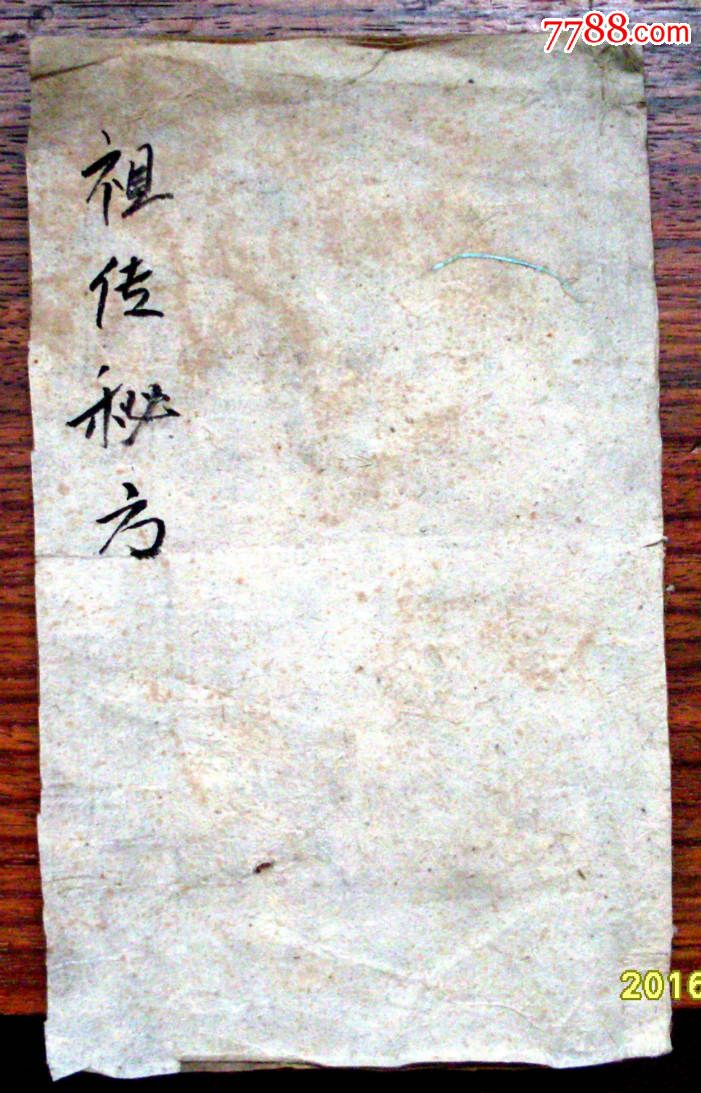 7788.com
祖传秘方
2016